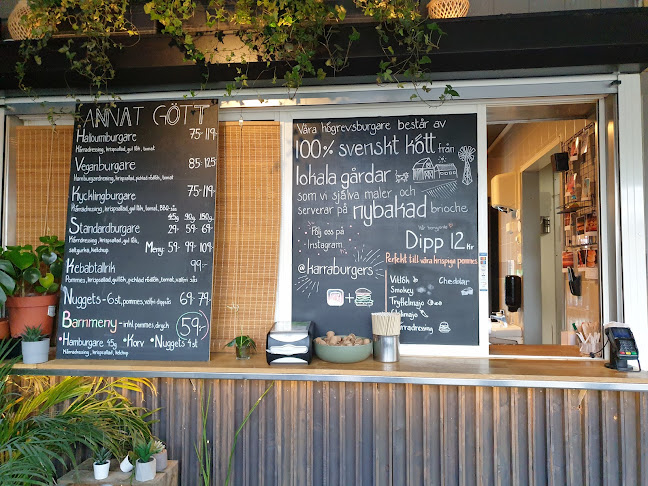 ANNAT GÖTT
Halloumburgare 75:-119:-
Kärradressing, krispsallad, gul lök, tomat
Veganburgare 85:-125
krispsallad, picklad rödlök, tomat
Kycklingburgare 75:-119:-
Kärradressing, krispsallad, gul lök, tomat, BBQ-sås
45g 90g 150g
Standardburgare 29:- 59:- 69:-
Kärradressing, krispsallad, gul lök,
saltgurka, ketchup Meny: 59:- 99:- 109:-
Kebabtallrik 99:-
Pommes, krispsallad, gul lök, picklad rödlök, tomat, valfri sås
Nuggets - 6 st, pommes, valfri dippsås 69:- 79:-
Barnmeny - inkl. pommes, dryck 59:-
•Hamburgare 45g •Korv •Nuggets 4 st
Kärradressing, krispsallad, ketchup
Våra högrevsburgare består av
100% svenskt kött från
lokala gårdar
som vi själva maler och
serverar på nybakad brioche
Följ oss på
Instagram
@karraburgers
+
Dipp 12 kr
Perfekt till våra krispiga pommes
Vitlök Cheddar
Smokey
Tryffelmajo
Kärradressing